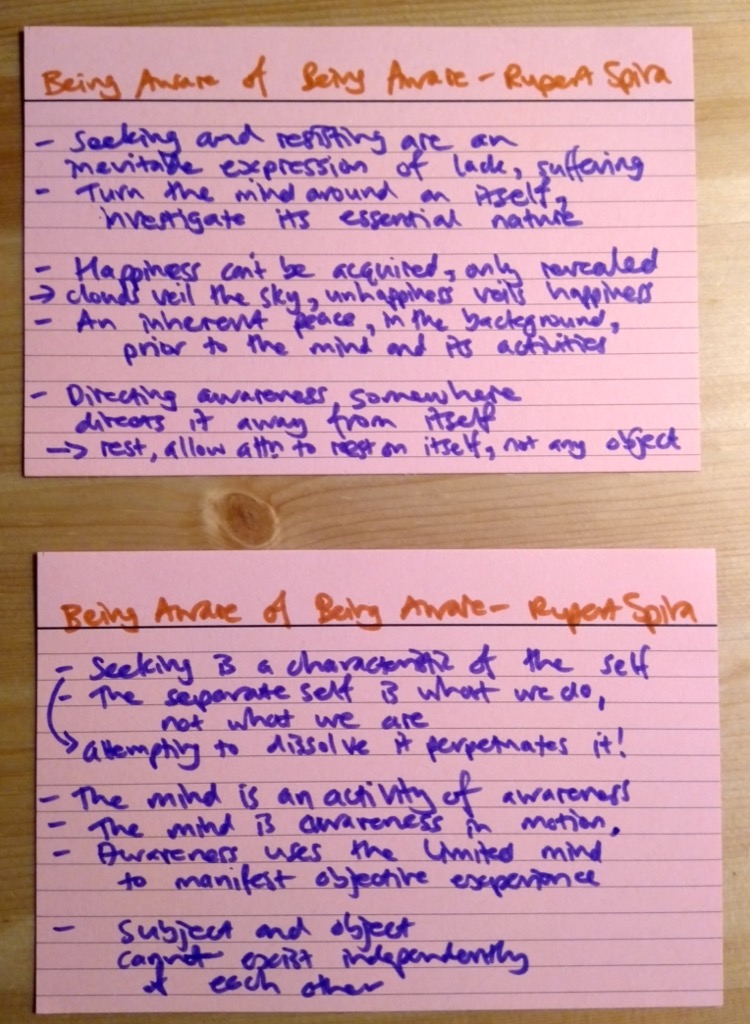 Being Aware of Being Aware - Rupert Spira
- Seeking and resisting are an
inevitable expression of lack, suffering
- Turn the mind around on itself,
investigate its essential nature
- Happiness can't be acquired, only revealed
→ clouds veil the sky, unhappiness veils happiness
- An inherent peace, in the background,
prior to the mind and its activities
- Directing awareness somewhere
directs it away from itself
→ rest, allow attn to rest on itself, not any object
Being Aware of Being Aware - Rupert Spira
- Seeking is a characteristic of the self
- The separate self is what we do,
not what we are
→ attempting to dissolve it perpetuates it!
- The mind is an activity of awareness
- The mind is awareness in motion.
- Awareness uses the limited mind
to manifest objective experience
- Subject and object
cannot exist independently
of each other